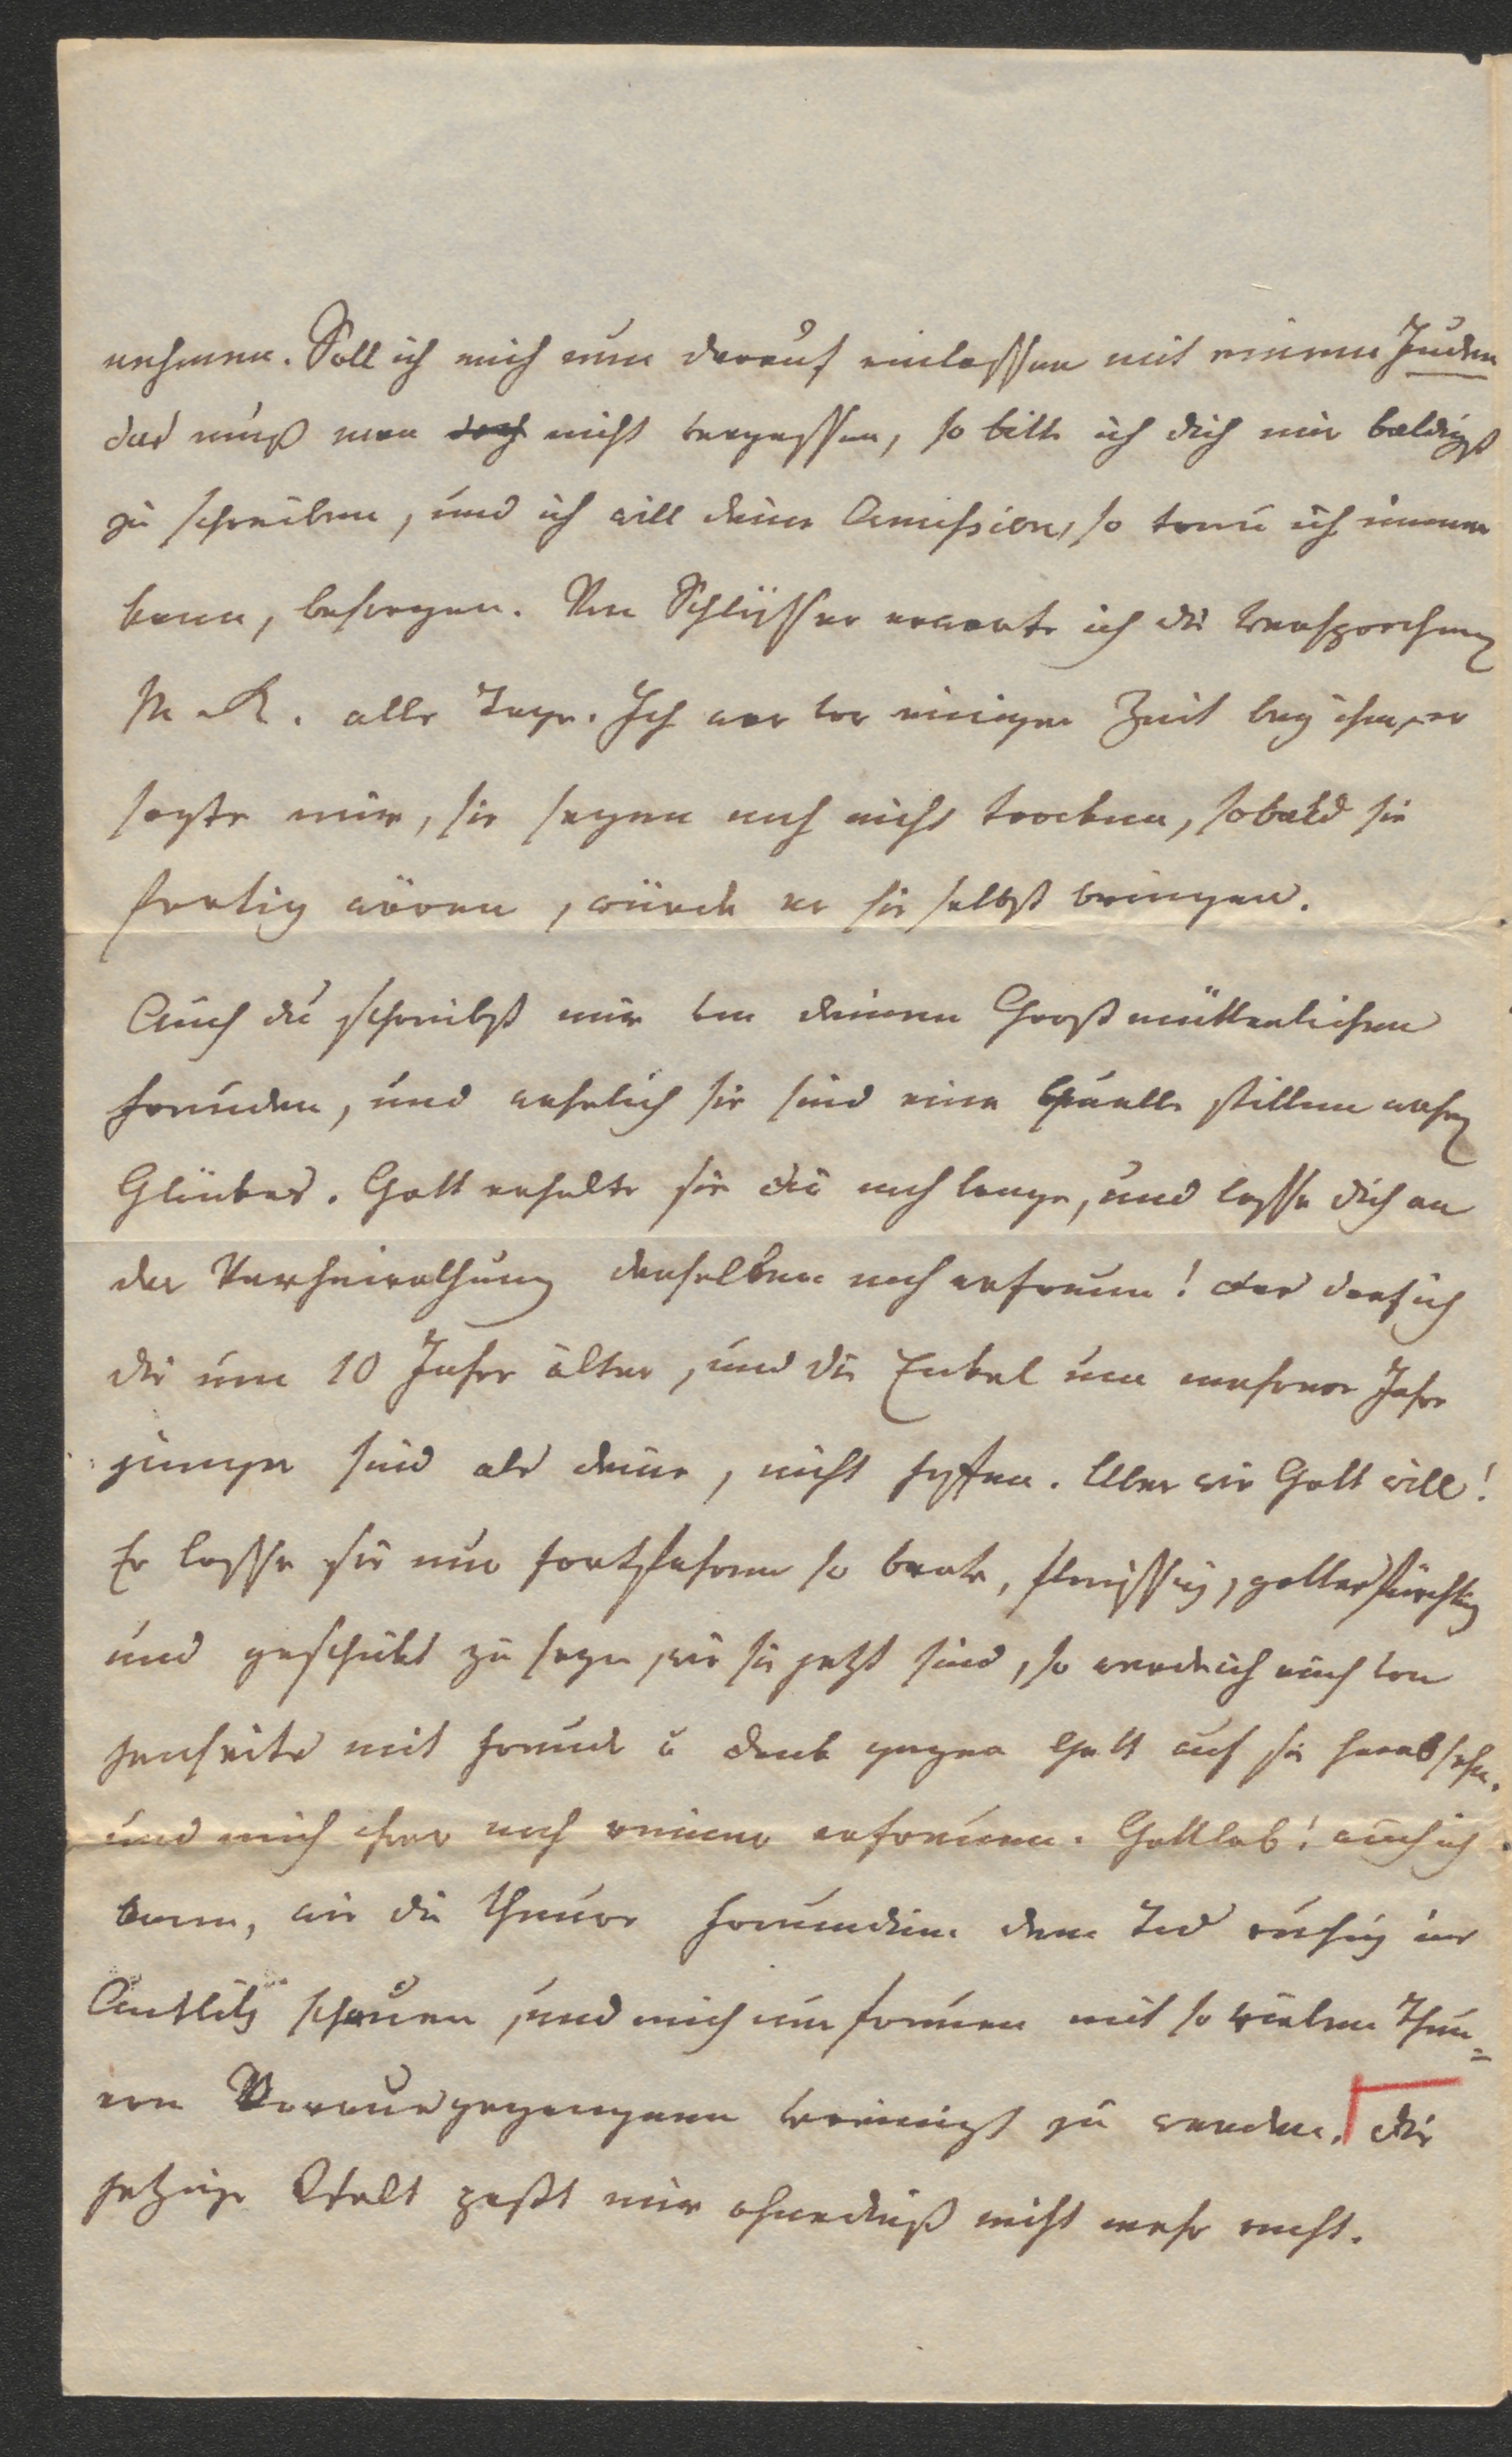 nehmen. Soll ich mich nun darauf einlassen mit einem Juden
das muß man doch nicht vergessen, so bitte ich dich mir baldigst
zu schreiben, und ich will deine Comission, so treu ich immer
kann, besorgen. Von Schlüsser erwarte ich die versprochenen
M. R. alle Tage. Ich war vor einiger Zeit bey ihm, er
sagte mir, sie seyen noch nicht trocken, sobald sie
fertig wären, würde er sie selbst bringen.
Auch du schreibst mir von deinen Großmütterlichen
Freuden, und wahrlich sie sind eine Quelle stillen wahren
Glückes. Gott erhalte sie dir noch lange, und lasse dich an
der Verheirathung derselben noch erfreun! das darf ich
die um 10 Jahre älter, und die Enkel um mehrere Jahre
jünger sind als deine, nicht hoffen. Aber wie Gott will!
Er lasse sie nur fortfahren so brav, fleissig, gottesfürchtig
und geschickt zu seyn, wie sie jetzt sind, so werde ich auch von
jenseits mit Freude u Dank gegen Gott auf sie herabsehn,
und mich ihrer noch reiner erfreuen. Gottlob! auch ich
kann, wie du theure Freundin dem Tod ruhig ins
Antlitz schauen, und mich nur freuen mit so vielen Theu=
ren Vorausgegangenen vereinigt zu werden. die
jetzige Welt paßt mir ohnedieß nicht mehr recht.